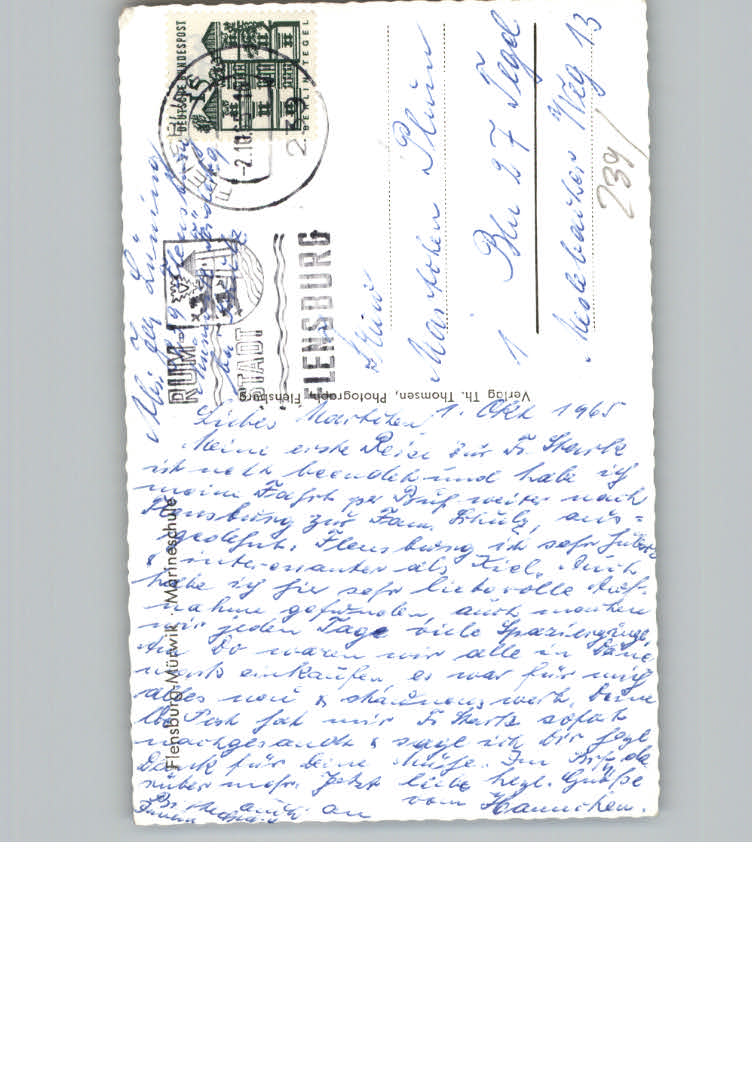 Liebes Martchen, 1. Okt 1965
Meine erste Reise zur Fr. Startz
ist nett beendet und habe ich
meine Fahrt per Bus weiter nach
Flensburg zur Fam. Schulz, aus=
gedehnt. Flensburg ist sehr hübsch
& interessanter als Kiel. Auch
habe ich hier sehr liebevolle Auf-
nahme gefunden, auch machen
wir jeden Tag viele Spaziergänge,
Am Do waren wir alle in Däne
mark einkaufen es war für mich
alles neu & staunenswert. Deine
lbe Post hat mir Fr. Startz sofort
nachgesandt & sage ich Dir hzgl.
Dank für Deine Mühe. Im Brf. da
rüber mehr. Jetzt liebe hzgl. Grüße
auch an vom Hannchen.
Abs.
Flensburg
Frau
Martchen
1 Bln 27 Tegel
Weg 13
239/
DEUTSCHE BUNDESPOST
15
BERLIN TEGEL
-2.10.65
239
RUM
STADT
FLENSBURG
Verlag Th. Thomsen, Photograph, Flensburg
Flensburg-Mürwik · Marineschule